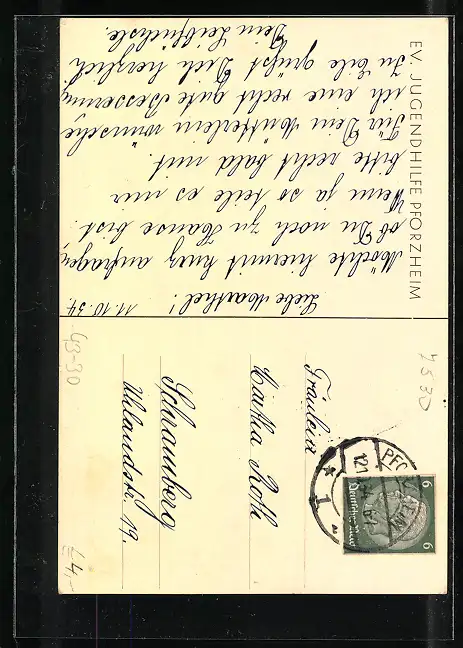 11.10.34.
Liebe Marthel!
Möchte hiermit kurz anfragen,
ob Du noch zu Hause bist.
Wenn ja so teile es mir
bitte recht bald mit.
Für Dein Mütterlein wünsche
ich eine recht gute Besserung
In Eile grüßt Dich herzlich
Dein Leibfüchsle.
EV. JUGENDHILFE PFORZHEIM
Fräulein
Martha Roth
Schramberg
Uhlandstr. 19.
6 6
Deutsches Reich
PFORZHEIM
1
4330
43-30